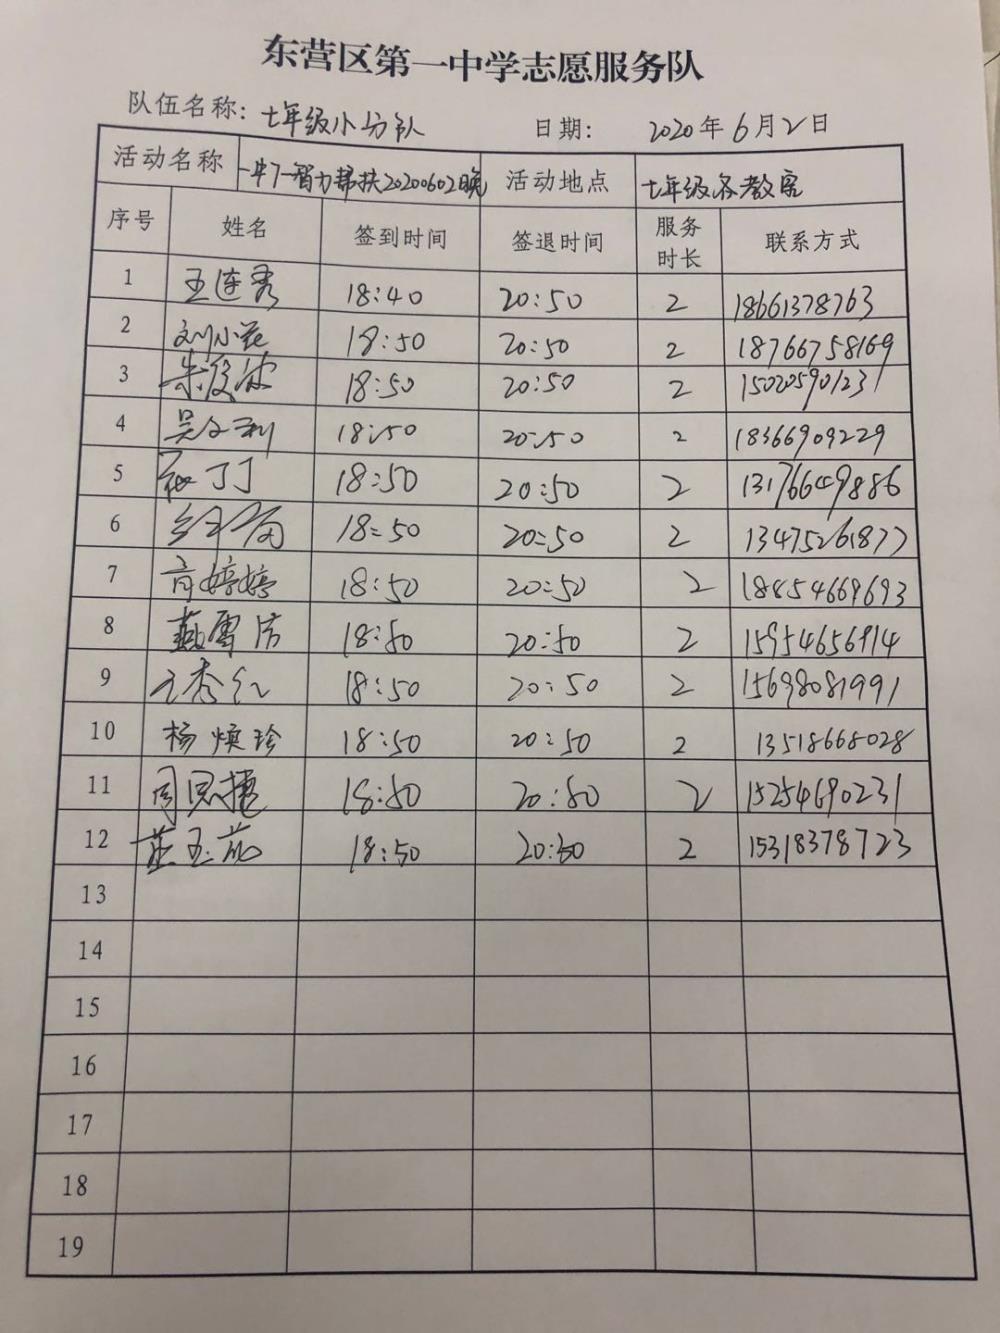 东营区第一中学志愿服务队
队伍名称: 七年级小分队 日期: 2020年6月2日
活动名称 一中7一智力帮扶20200602晚 活动地点 七年级各教室
序号 姓名 签到时间 签退时间 服务时长 联系方式
1 王连秀 18:40 20:50 2 18661378763
2 刘小花 18:50 20:50 2 18766758169
3 18:50 20:50 2 15020590123
4 吴文利 18:50 20:50 2 18366909229
5 丁丁 18:50 20:50 2 13176649886
6 18:50 20:50 2 13475261877
7 婷婷 18:50 20:50 2 18454669693
8 18:50 20:50 2 15954656914
9 王秀红 18:50 20:50 2 15698081991
10 杨焕珍 18:50 20:50 2 13518668028
11 周恩捷 18:50 20:50 2 15254690231
12 18:50 20:50 2 15318378723
13
14
15
16
17
18
19